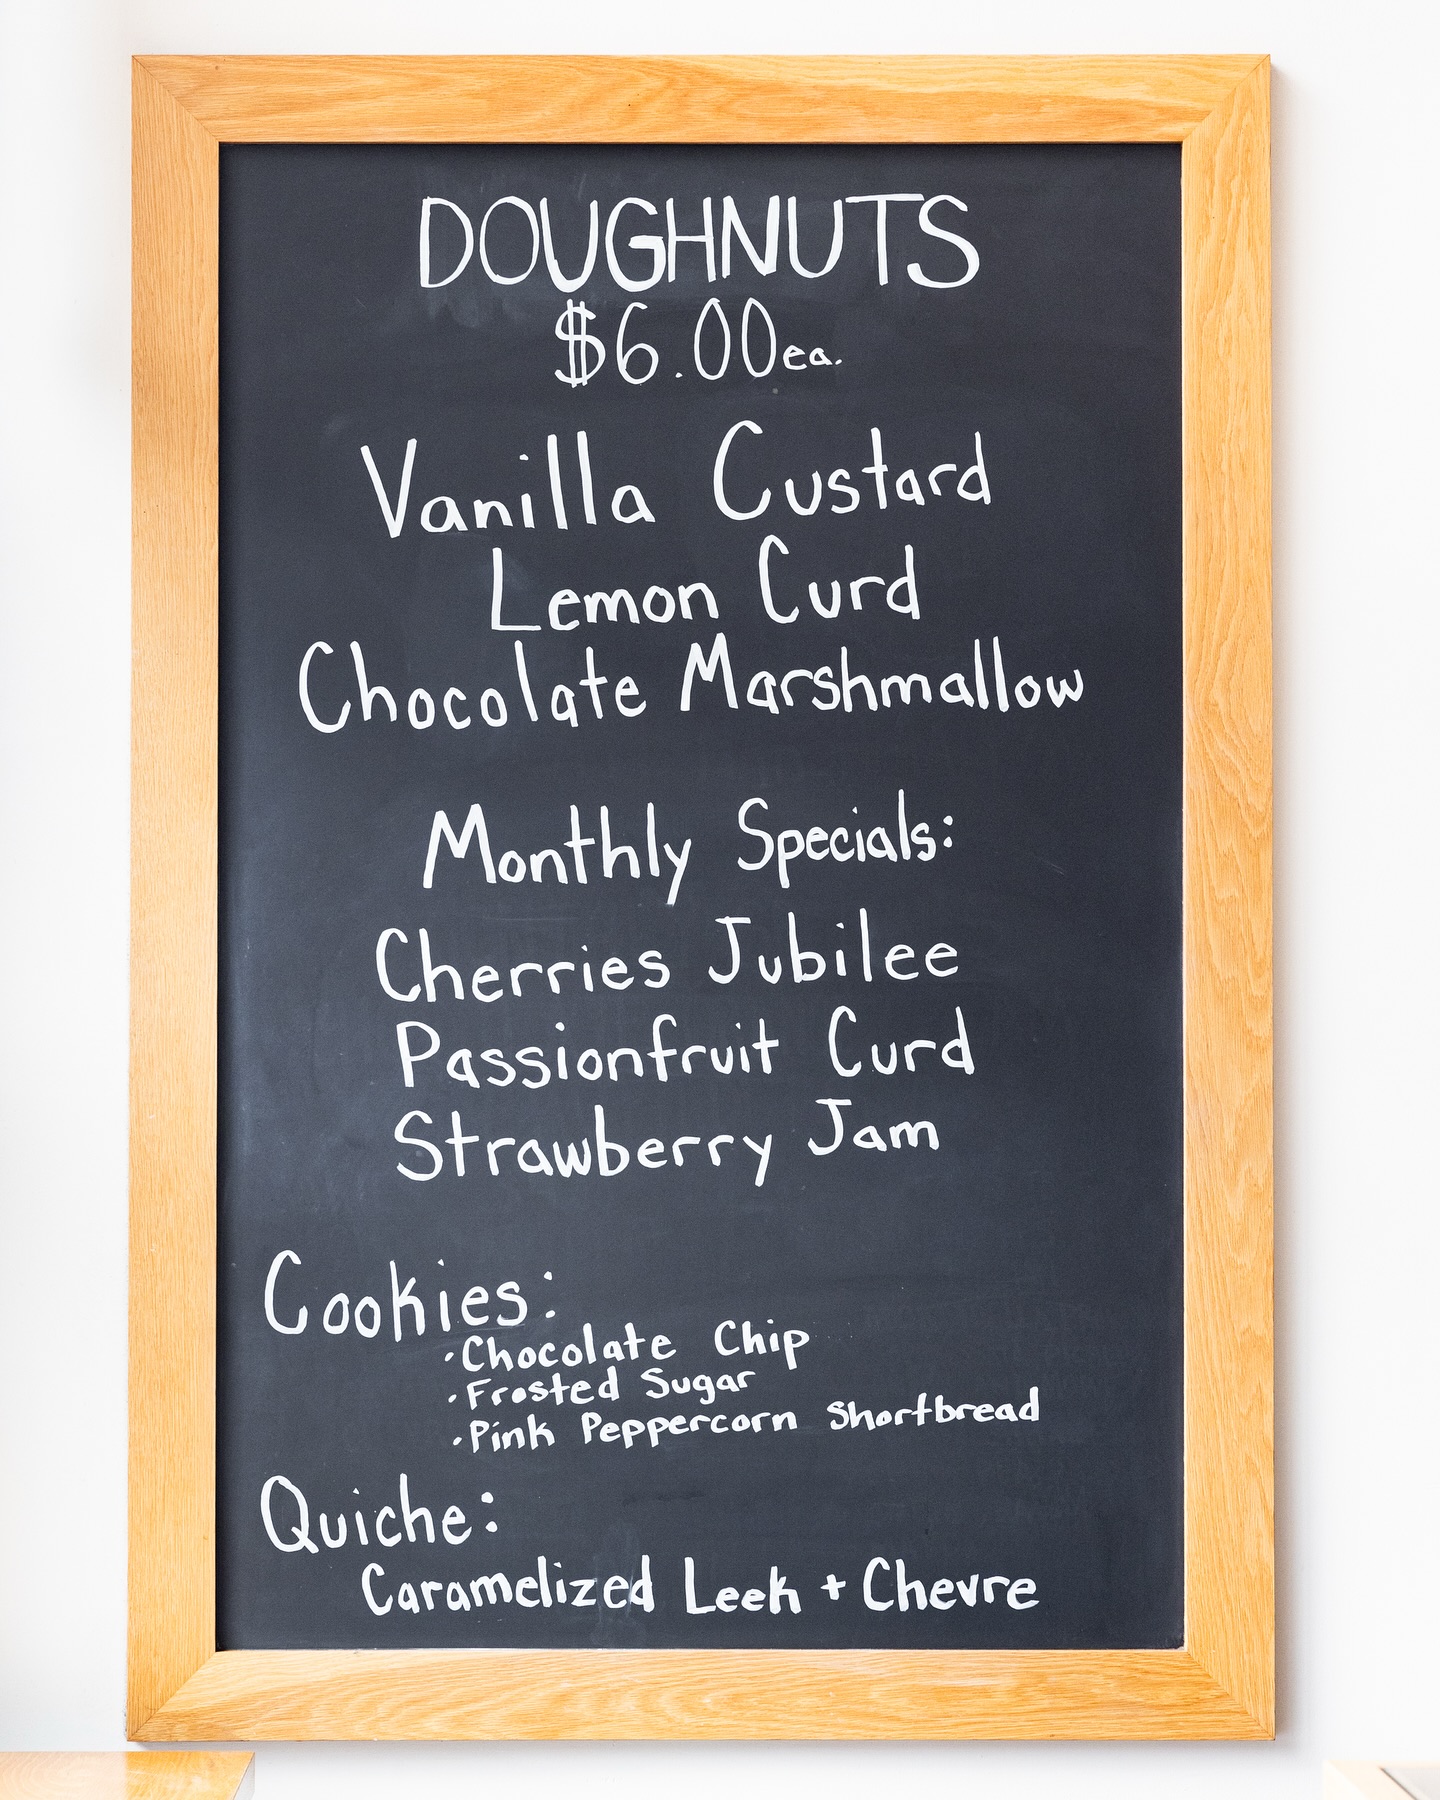 DOUGHNUTS
$6.00 ea.
Vanilla Custard
Lemon Curd
Chocolate Marshmallow
Monthly Specials:
Cherries Jubilee
Passionfruit Curd
Strawberry Jam
Cookies:
· Chocolate Chip
· Frosted Sugar
· Pink Peppercorn Shortbread
Quiche:
Caramelized Leek + Chevre